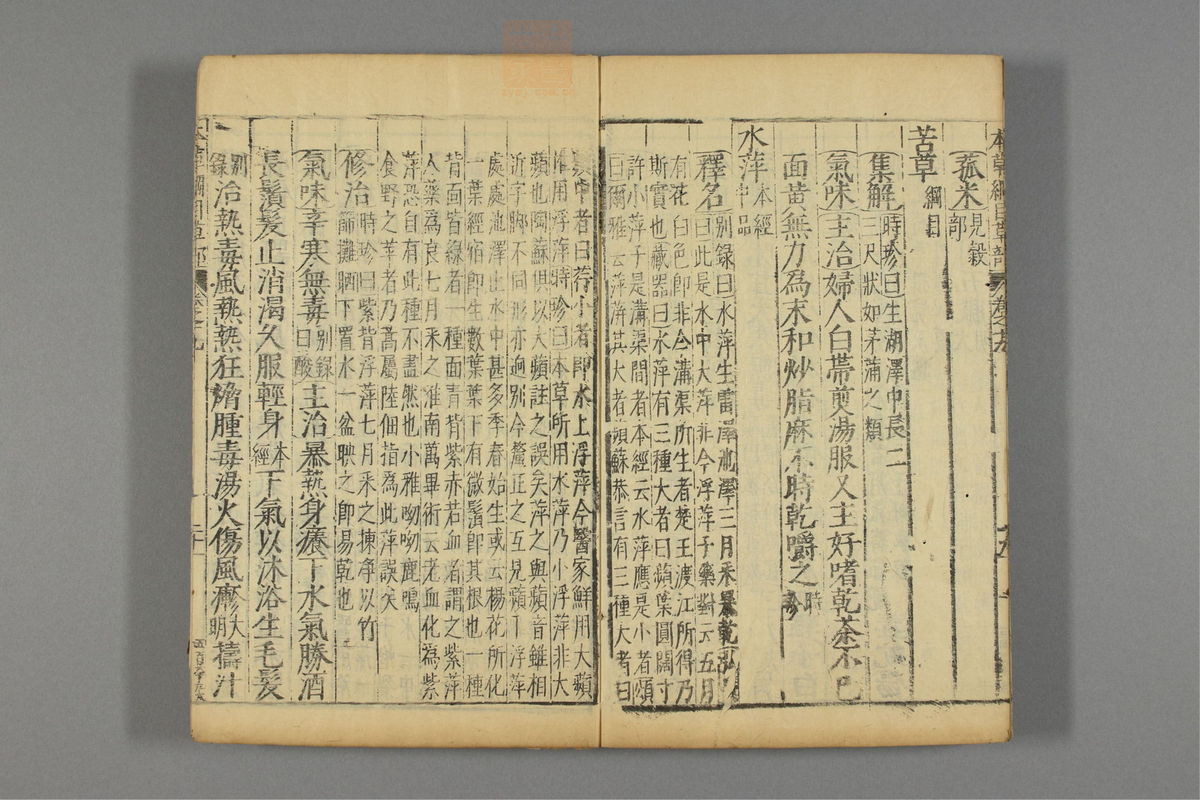 本草綱目草部
卷之九
菰米見穀部
苦草綱目
集解時珍曰生湖澤中長二
三尺狀如茅蒲之類
氣味主治婦人白帶煎湯服又主好嗜乾茶不已
面黃無力為末和炒脂麻不時乾嚼之時珍
水萍本經中品
釋名別錄曰水萍生雷澤池澤三月采暴乾弘
景曰此是水中大萍非今浮萍子藥對云五月
有花白色即非今溝渠所生者楚王渡江所得乃
斯實也藏器曰水萍有三種大者曰蘋葉圓闊寸
許小萍子是溝渠間者本經云水萍應是小者頌
曰爾雅云萍蓱其大者蘋蘇恭言有三種大者曰
中者曰荇小者即水上浮萍今醫家鮮用大蘋
用浮萍時珍曰本草所用水萍乃小浮萍非大
蘋也陶蘇俱以大蘋註之誤矣萍之與蘋音雖相
近字腳不同形亦迥別今釐正之互見蘋下浮萍
處處池澤止水中甚多季春始生或云楊花所化
一葉經宿即生數葉葉下有微鬚即其根也一種
背面皆綠者一種面青背紫赤若血者謂之紫萍
入藥為良七月采之淮南萬畢術云老血化為紫
萍恐自有此種不盡然也小雅呦呦鹿鳴
食野之苹者乃蒿屬陸佃指為此萍誤矣
修治時珍曰紫背浮萍七月采之揀淨以竹
篩攤晒下置水一盆映之即易乾也
氣味辛寒無毒別錄曰酸主治暴熱身癢下水氣勝酒
長鬚髮止消渴久服輕身本經下氣以沐浴生毛髮
別錄治熱毒風熱熱狂㿉腫毒湯火傷風𤺋大明擣汁